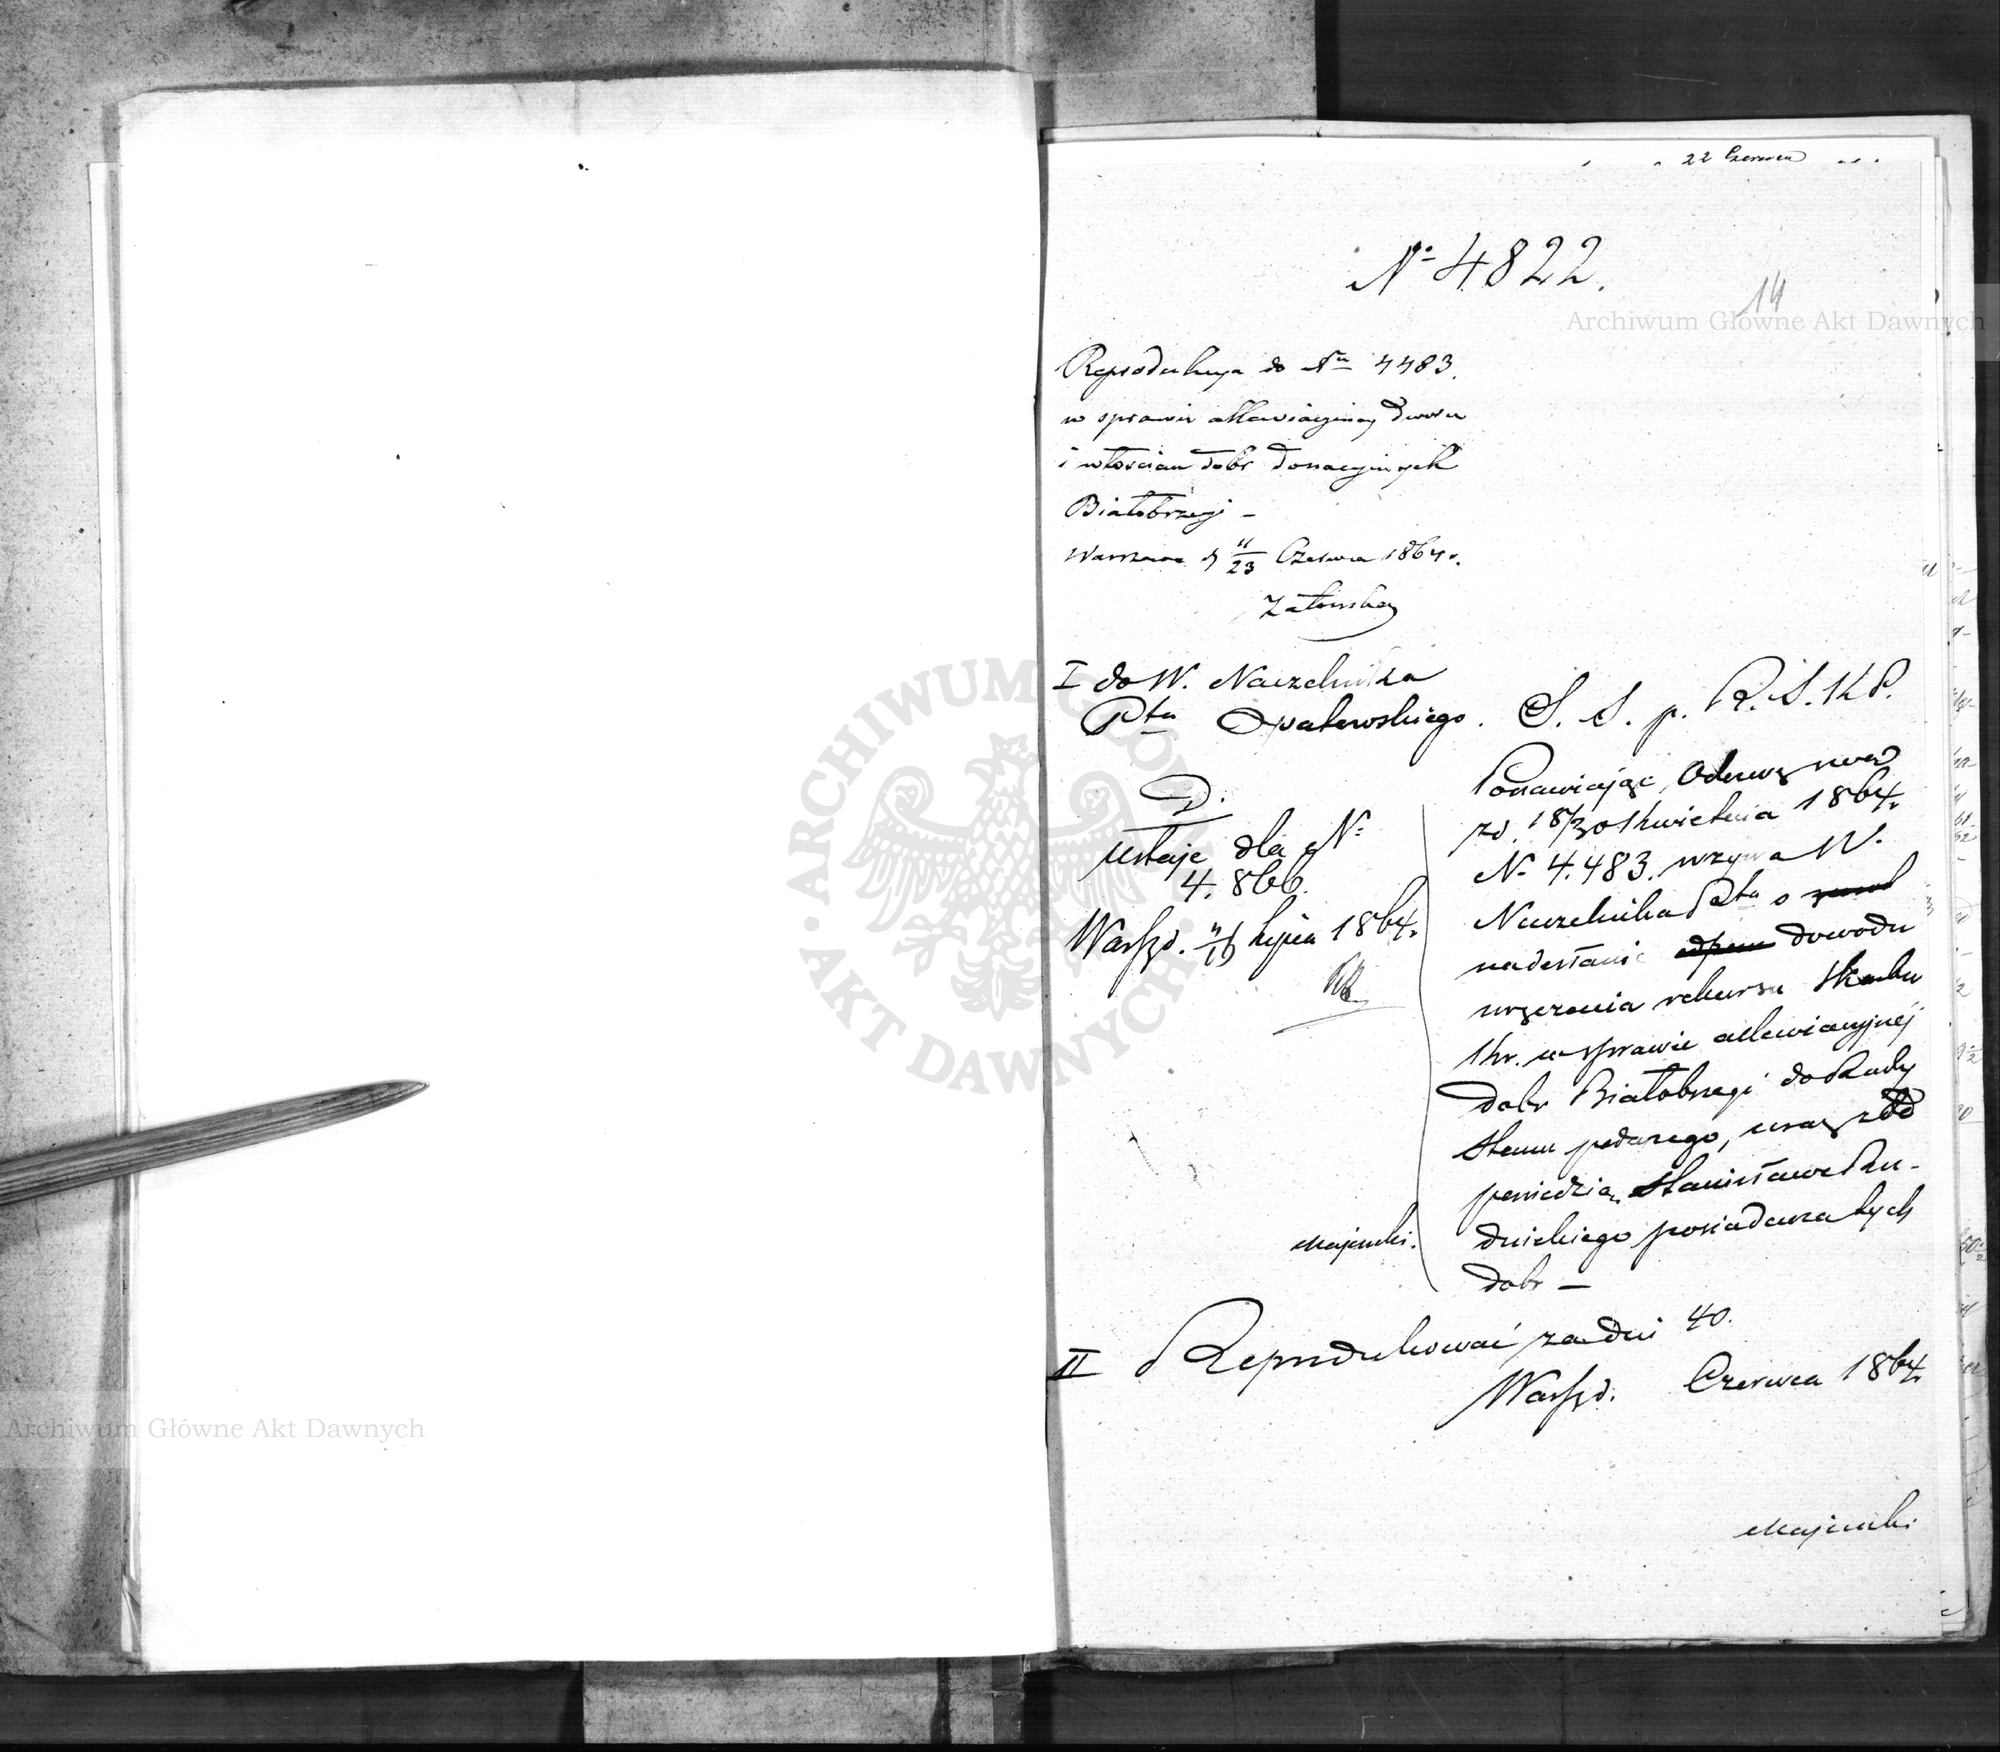 22 Czerwca
No 4822.
14
Archiwum Główne Akt Dawnych
Reprodukcya do Nru 4483.
w sprawie allewiacyjnej dworu
i włościan dóbr donacyjnych
Białobrzegi –
Warszawa d 11/23 Czerwca 1864 r.
I do W. Naczelnika
Ptu Opatowskiego.
S. S. p. R. S. K P.
D.
ustaje dla No
4.866.
Warszd. lipca 1864.
Ponawiając Odezwę swą
zd. 18/30 Kwietnia 1864.
No 4.483. wzywa W.
Naczelnika Ptu o
nadesłanie dowodu
wręczenia rekursu Skarbu
Kr. w sprawie allewiacyjnej
dóbr Białobrzegi do Rady
Stanu podanego, wraz z od
powiedzią Stanisława Ru-
dnickiego posiadacza tych
dóbr –
Majewski.
II Reprodukować za dni 40.
Warszd. Czerwca 1864
Majewski
ARCHIWUM GŁÓWNE AKT DAWNYCH
Archiwum Główne Akt Dawnych